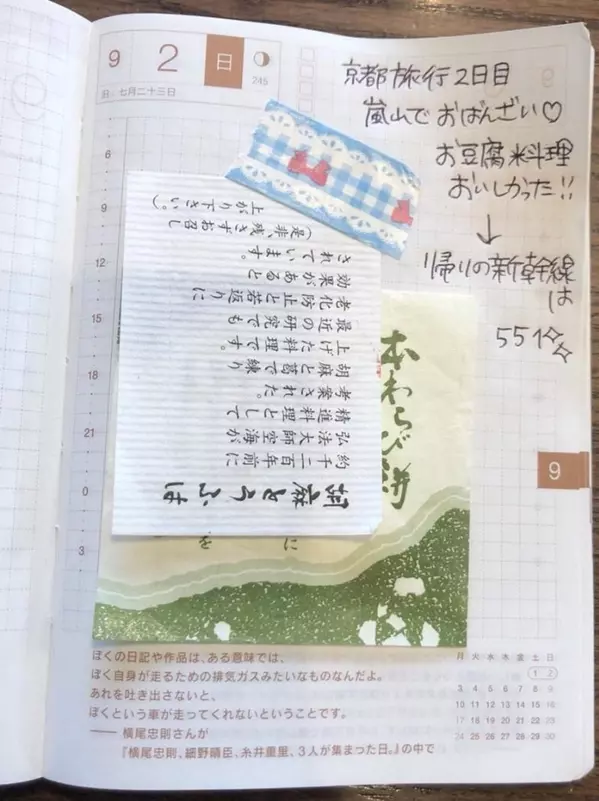 9 2 日
245
旧 七月二十三日
京都旅行2日目
嵐山でおばんざい♡
お豆腐料理
おいしかった!!
↓
帰りの新幹線
は
551☆☆
6
9
12
15
18
21
0
3
胡麻とうふは
約千二百年前に
弘法大師空海が
精進料理として
考案された。
胡麻と葛で練り
上げた料理です。
最近の研究でも
老化防止と若返りに
効果があると
されています。
(是非、残さずお召し
上がり下さい。)
本わらび餅
に
を
9
ぼくの日記や作品は、ある意味では、
ぼく自身が走るための排気ガスみたいなものなんだよ。
あれを吐き出さないと、
ぼくという車が走ってくれないということです。
―― 横尾忠則さんが
『横尾忠則、細野晴臣、糸井重里、3人が集まった日。』の中で
月 火 水 木 金 土 日
1 2
3 4 5 6 7 8 9
10 11 12 13 14 15 16
17 18 19 20 21 22 23
24 25 26 27 28 29 30